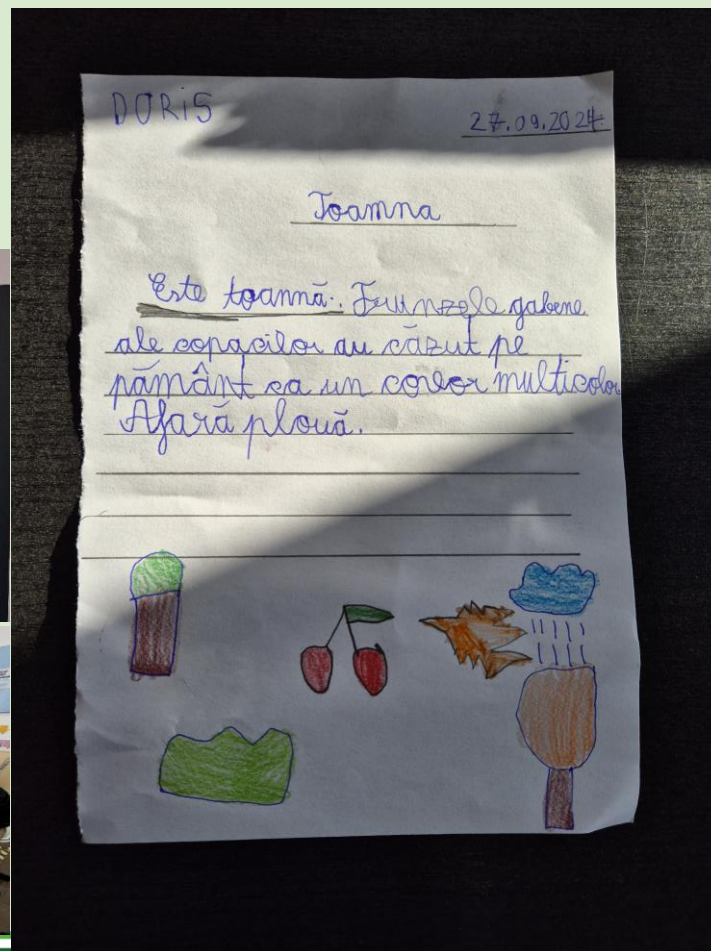 DORiS
27.09.2024
Toamna
Este toamnă. Frunzele gabene
ale copacilor au căzut pe
pământ ca un covor multicolor
Afară plouă.